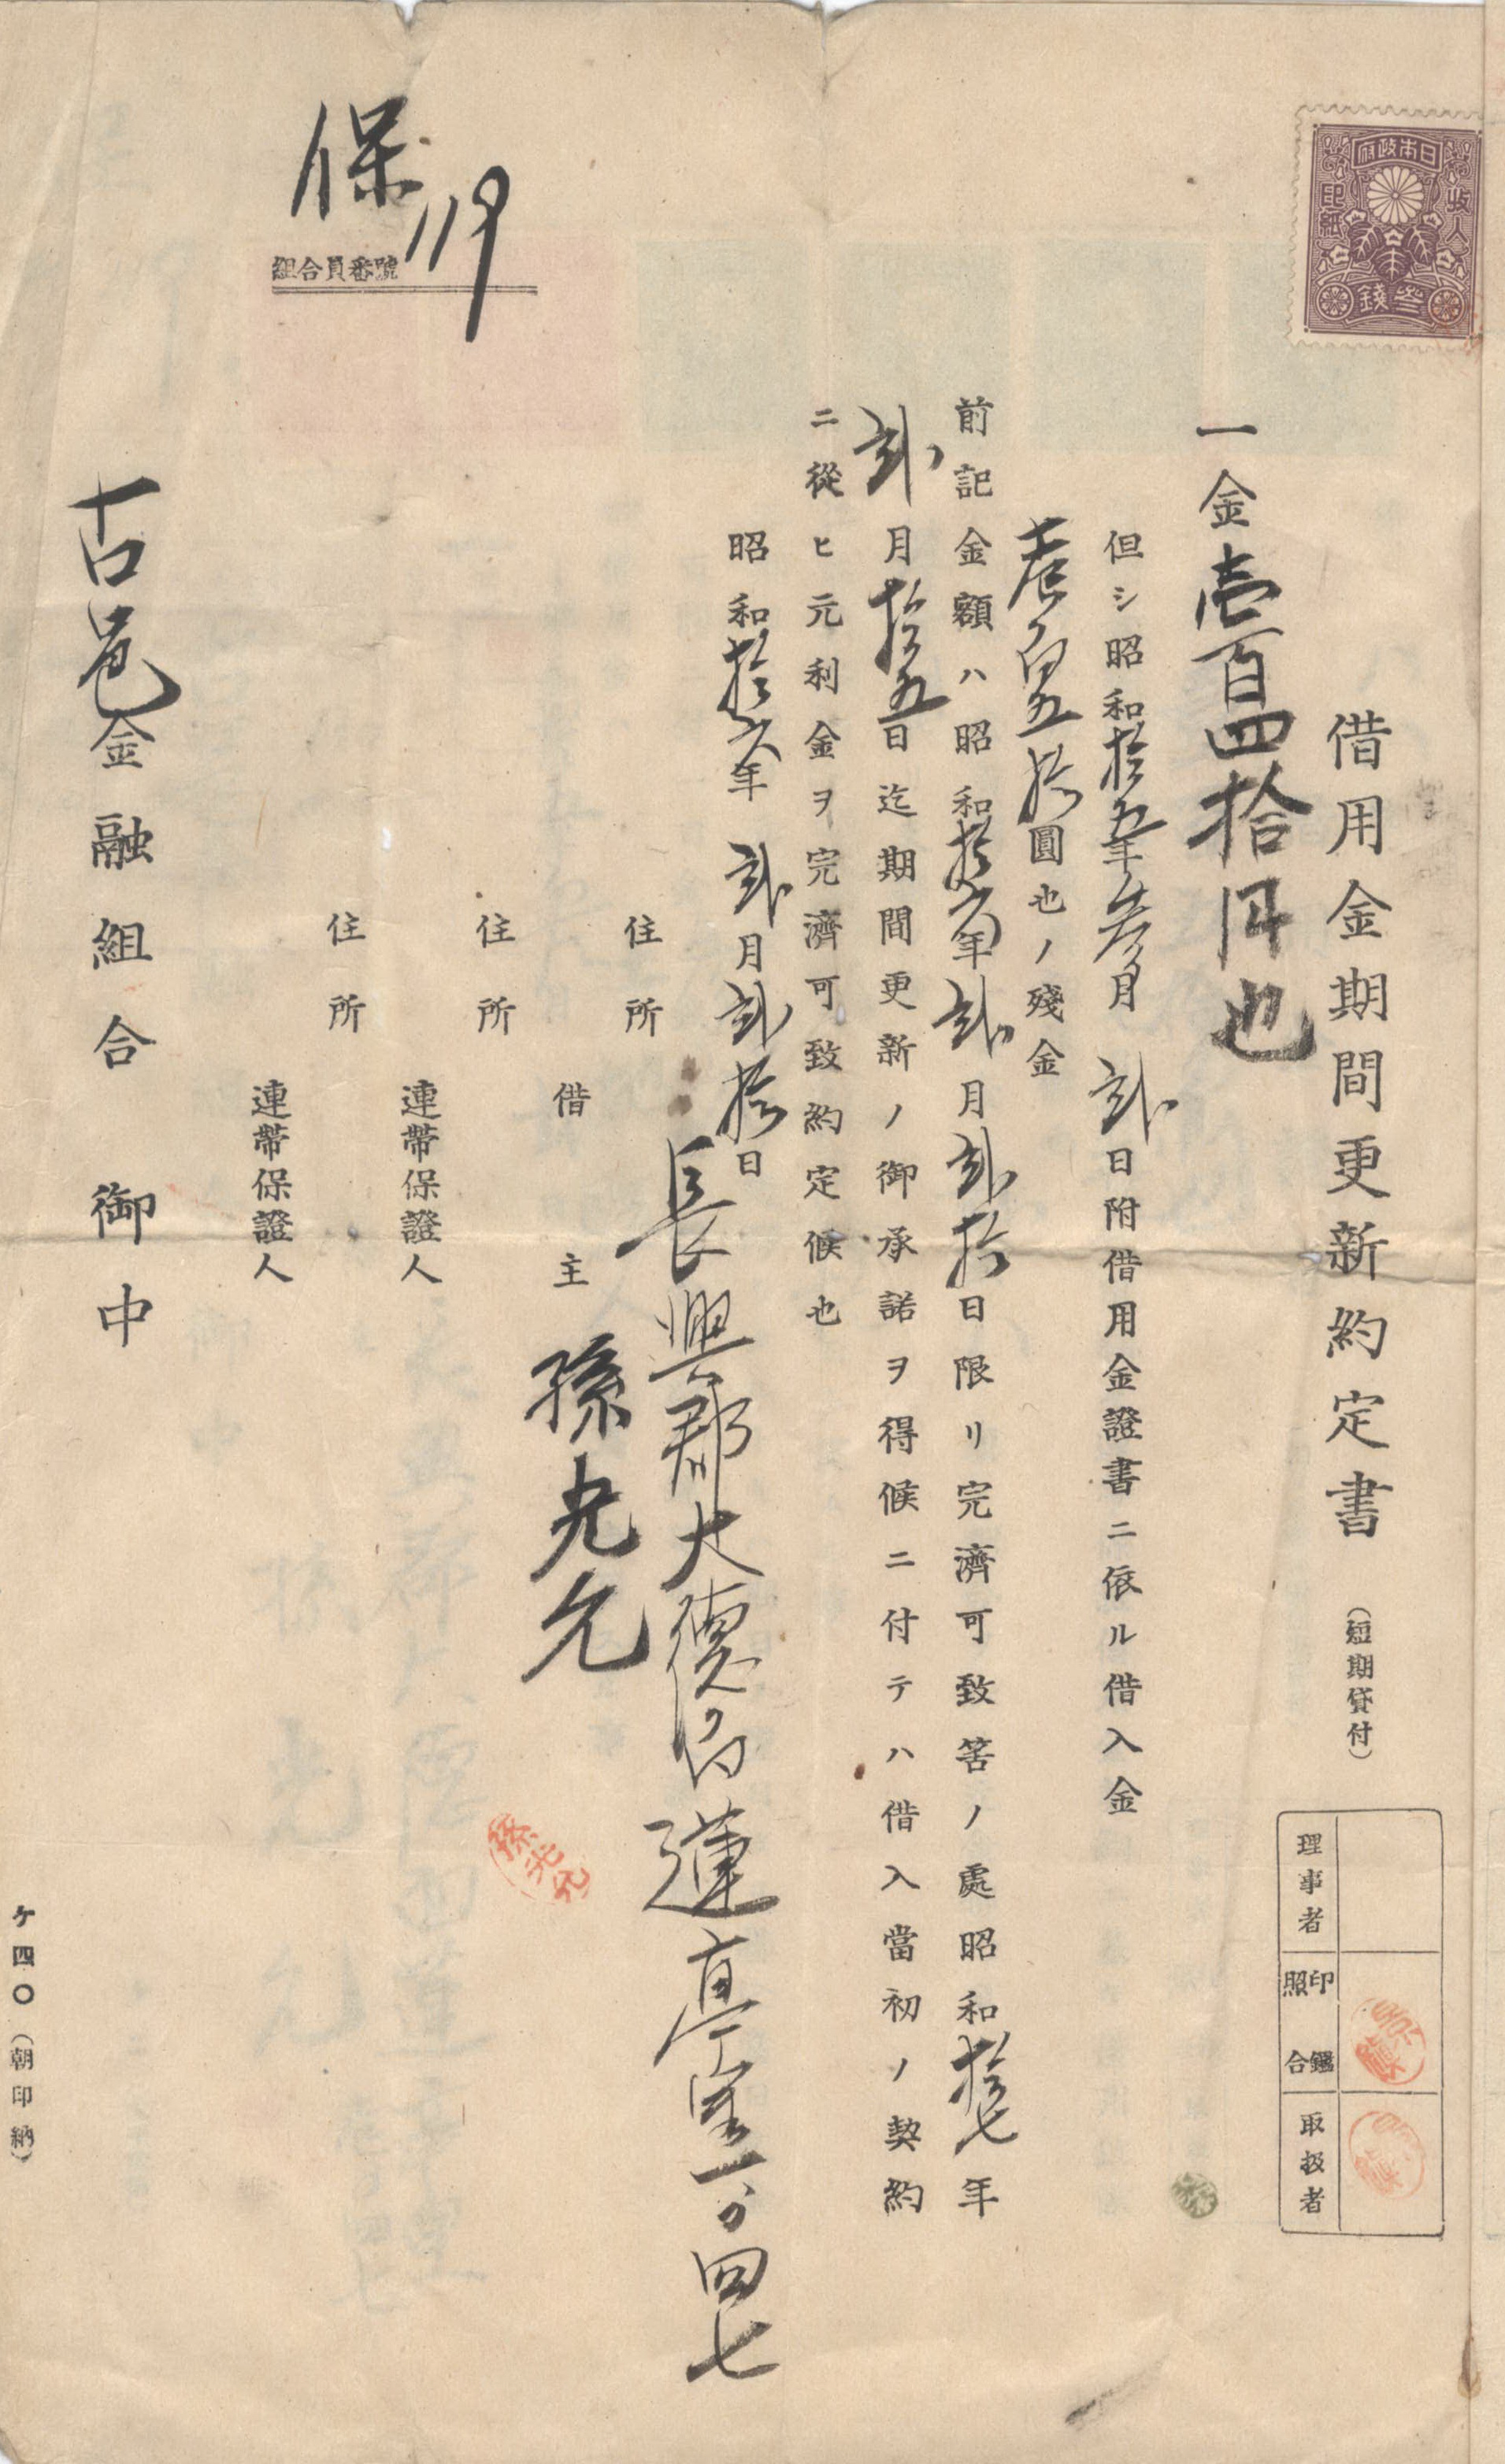 日本政府
收入
印紙
參錢
借用金期間更新約定書 (短期貸付)
一金壱百四拾円也
但シ昭和拾五年參月貳日附借用金證書ニ依ル借入金
壱百五拾圓也ノ殘金
前記金額ハ昭和拾六年貳月貳拾日限リ完濟可致筈ノ處昭和拾七年
貳月拾五日迄期間更新ノ御承諾ヲ得候ニ付テハ借入當初ノ契約
ニ從ヒ元利金ヲ完濟可致約定候也
昭和拾六年貳月貳拾日
住所 長興郡大德面蓮亭里一ノ四七
借主 孫光允
孫光允
住所
連帶保證人
住所
連帶保證人
古邑金融組合 御中
保119
組合員番號
理事者
印鑑照合
取扱者
ケ四〇(朝印納)